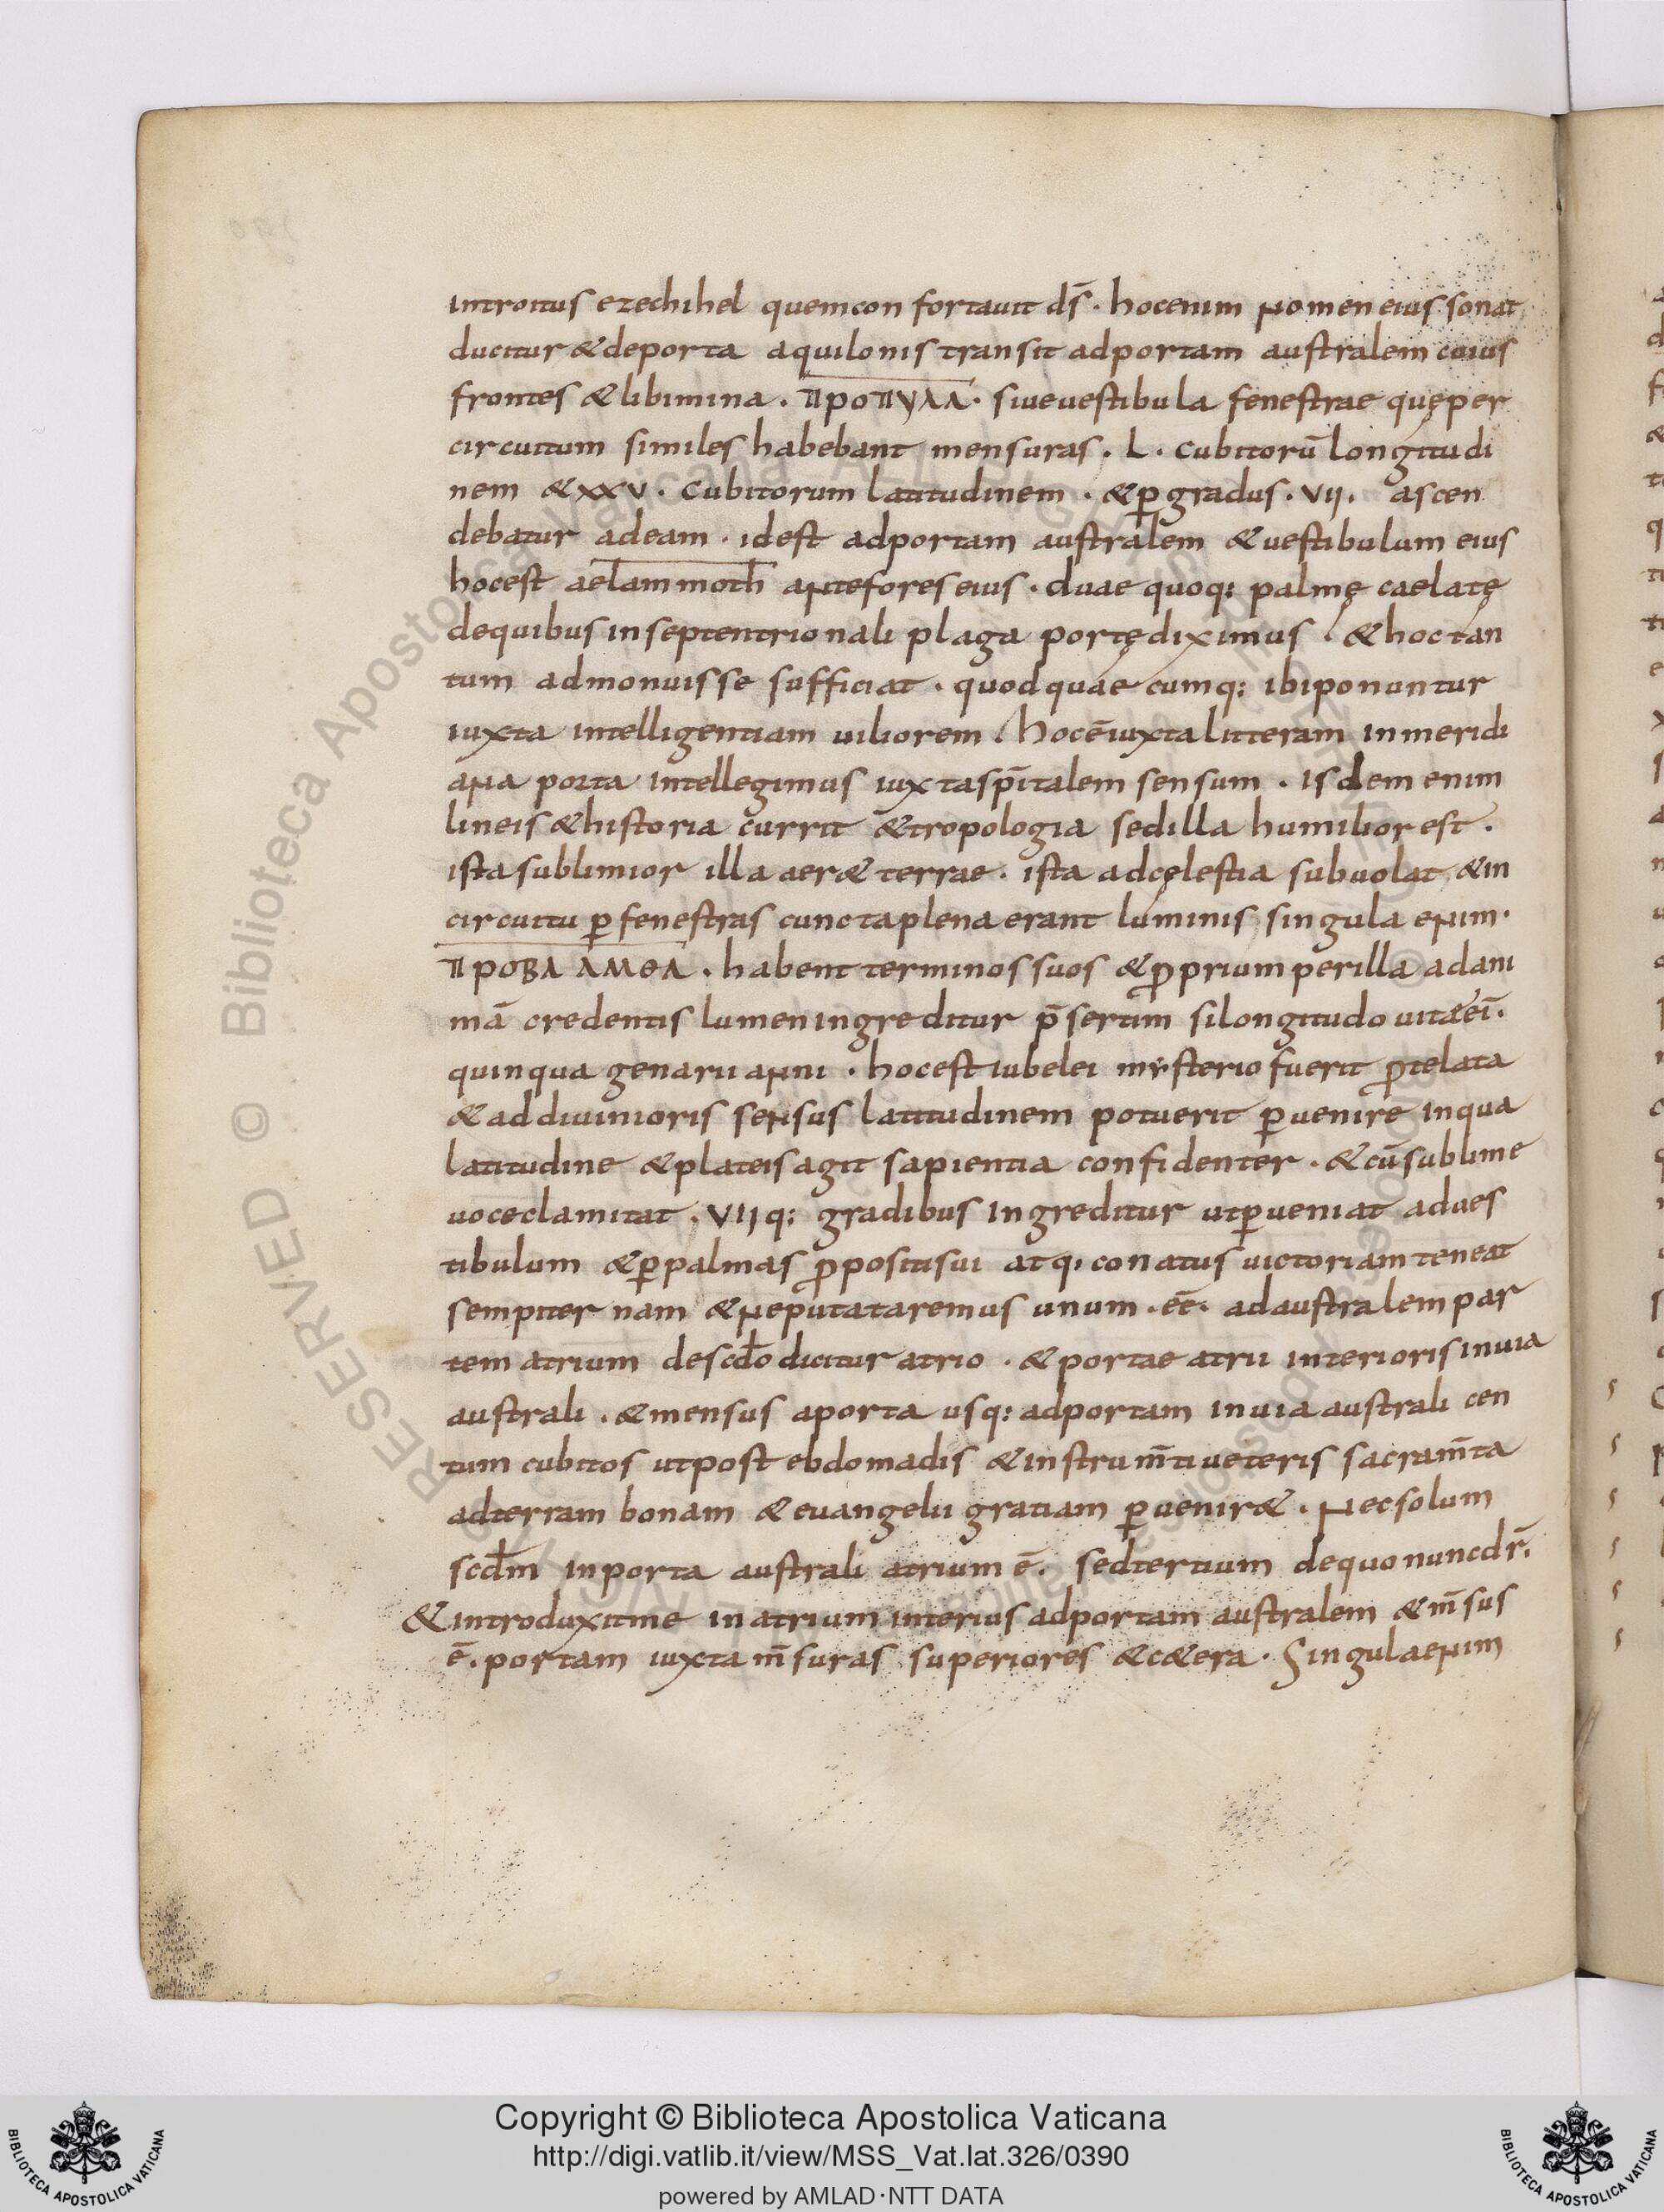 introitus ezechihel quemcon fortauit ds̄ · hocenim nomen eius sonat
ducitur & deporta aquilonis transit adportam australem cuius
frontes & libimina . ΠΡΟΠΥΛΑ · siue uestibula fenestrae quęper
circuitum similes habebant mensuras . L . cubitorū longitudi
nem & xxv . cubitorum latitudinem . & ꝑ gradus . VII . ascen
debatur adeam . idest adportam australem & uestibulum eius
hocest aelammoth antefores eius . duae quoq: palmę caelatę
dequibus inseptentrionali plaga portędiximus . & hoc tan
tum admonuisse sufficiat . quod quae cumq: ibiponuntur
iuxta intelligentiam uiliorem . hocē iuxta litteram inmeridi
ana porta intellegimus iuxtasp̄italem sensum . isdem enim
lineis & historia currit & tropologia sedilla humilior est .
ista sublimior illa aer& terrae . ista adcęlestia subuolat & in
circuitu ꝑ fenestras cuncta plena erant luminis singula enim .
ΠΡΟΒΛ ΛΜΘΛ . habent terminos suos & ꝓprium perilla adani
mā credentis lumen ingreditur p̄sertim silongitudo uitaeeī .
quinqua genarii anni . hocest iubelei mysterio fuerit ꝓtelata
& addiuinioris sensus latitudinem potuerit ꝑuenire inqua
latitudine & plateis agit sapientia confidenter . & cūsublime
uoceclamitat . VII q: gradibus ingreditur utꝑueniat adues
tibulum & ꝑpalmas ꝓpositisui atq; conatus uictoriam teneat
sempiter nam & neputataremus unum . eē . adaustralempar
tem atrium descd̄o dicitur atrio . & portae atrii interioris inuia
australi . & mensus aporta usq: adportam inuia australi cen
tum cubitos utpost ebdomadis & instrum̄ti ueteris sacram̄ta
adterram bonam & euangelii gratiam ꝑuenir& . necsolum
scd̄m inporta australi atrium ē . sedtertium dequo nuncdr̄ .
& introduxitme inatrium interius adportam australem & m̄sus
ē . portam iuxta m̄suras superiores & c&era . Singulaenim
RESERVED © Biblioteca Apostolica Vaticana
Copyright © Biblioteca Apostolica Vaticana
http://digi.vatlib.it/view/MSS_Vat.lat.326/0390
powered by AMLAD·NTT DATA
BIBLIOTECA APOSTOLICA VATICANA
BIBLIOTECA APOSTOLICA VATICANA